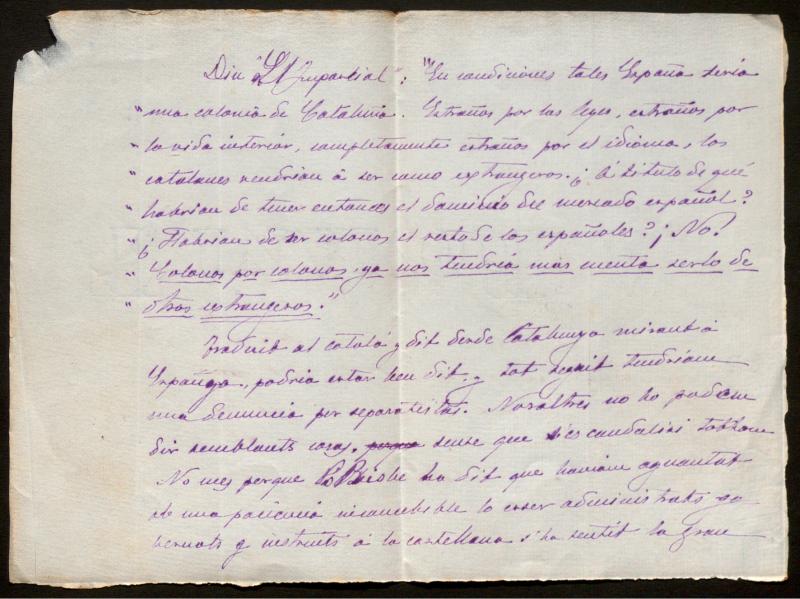 Diu "L'Imparcial": "En condiciones tales España seria
" una colonia de Cataluña. Estraños por las leyes, estraños por
" la vida interior, completamente estraños por el idioma, los
" catalanes vendrian á ser como extrangeros. ¿Á título de qué
" habrian de tener entonces el dominio del mercado español?
" ¿Habrian de ser colonos el resto de los españoles? ¡No!
" Colonos por colonos, ya nos tendria mas cuenta serlo de
" otros extrangeros."
Traduit al catalá y dit desde Catalunya mirant á
Espanya, podria estar ben dit, y tot seguit tindriam
una denuncia per separatistas. Nosaltres no ho podem
dir semblants cosas, sense que s'escandalisi tothom
No mes perque lo Bisbe ha dit que haviam aguantat
ab una paciencia incansable lo esser administrats go
bernats y instruits á la castellana s'ha sentit la gran